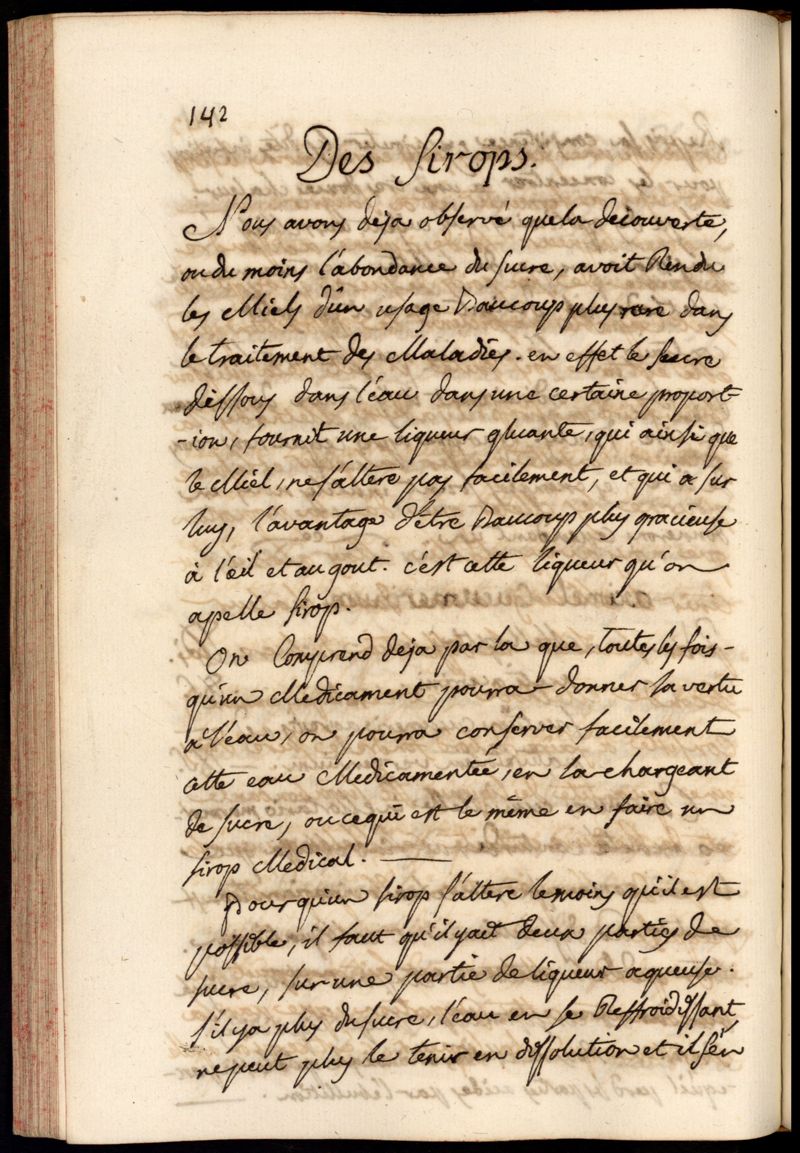 142
Des Sirops.
Nous avons deja observé que la découverte,
ou du moins l'abondance du sucre, avoit Rendu
les Miels d'un usage Beaucoup plus rare dans
le traitement des Maladies. en effet le sucre
dissous dans l'eau dans une certaine proport-
-ion, fournit une liqueur gluante, qui ainsi que
le Miel, ne s'altere pas facilement, et qui a sur
luy, l'avantage d'être Beaucoup plus gracieuse
à l'œil et au gout. c'est cette liqueur qu'on
apelle sirop.
On Comprend deja par la que, toutes les fois-
qu'un Médicament pourra donner sa vertu
a l'eau, on pourra conserver facilement
cette eau Médicamentée, en la chargeant
de sucre, ou ce qui est le même en faire un
sirop Médical. —
Pour qu'un sirop s'altere le moins qu'il est
possible, il faut qu'il y ait deux parties de
sucre, sur une partie de liqueur aqueuse.
s'il y a plus du sucre, l'eau en se Reffroidissant,
ne peut plus le tenir en dissolution et il s'en